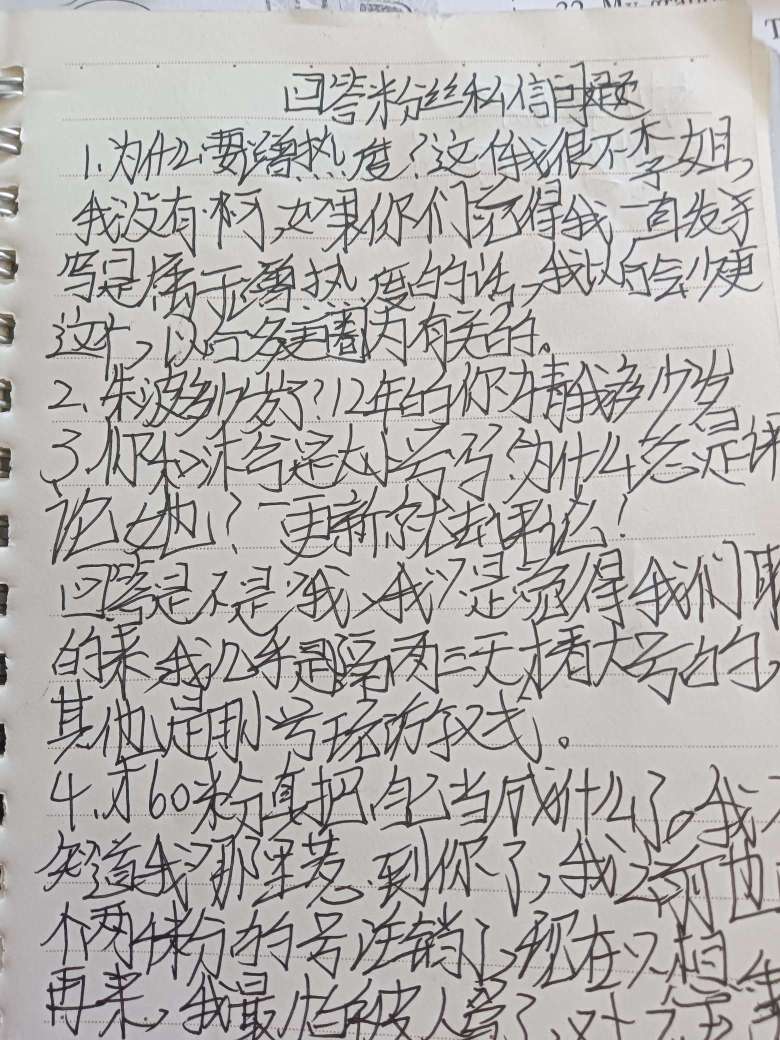 回答粉丝私信问题
1.为什么要蹭热度?这 我很不 姐,
我没有啊,如果你们觉得我一直发手
写是属于蹭热度的话,我以后会少更
这个,以后多更圈内有关的。
2. 岁了?12年的你猜我多少岁
3.你和 是大小号吗?为什么总是评
论她?一更新你就去评论?
回答是不是我,我只是觉得我们
的来,我几乎是隔两三天才看大号的,
其他是用小号玩 。
4.才60粉真把自己当成什么了。我
知道我那里惹到你了,我之前也
个两千粉的号注销了,现在只想
再来,我最怕被人骂了,